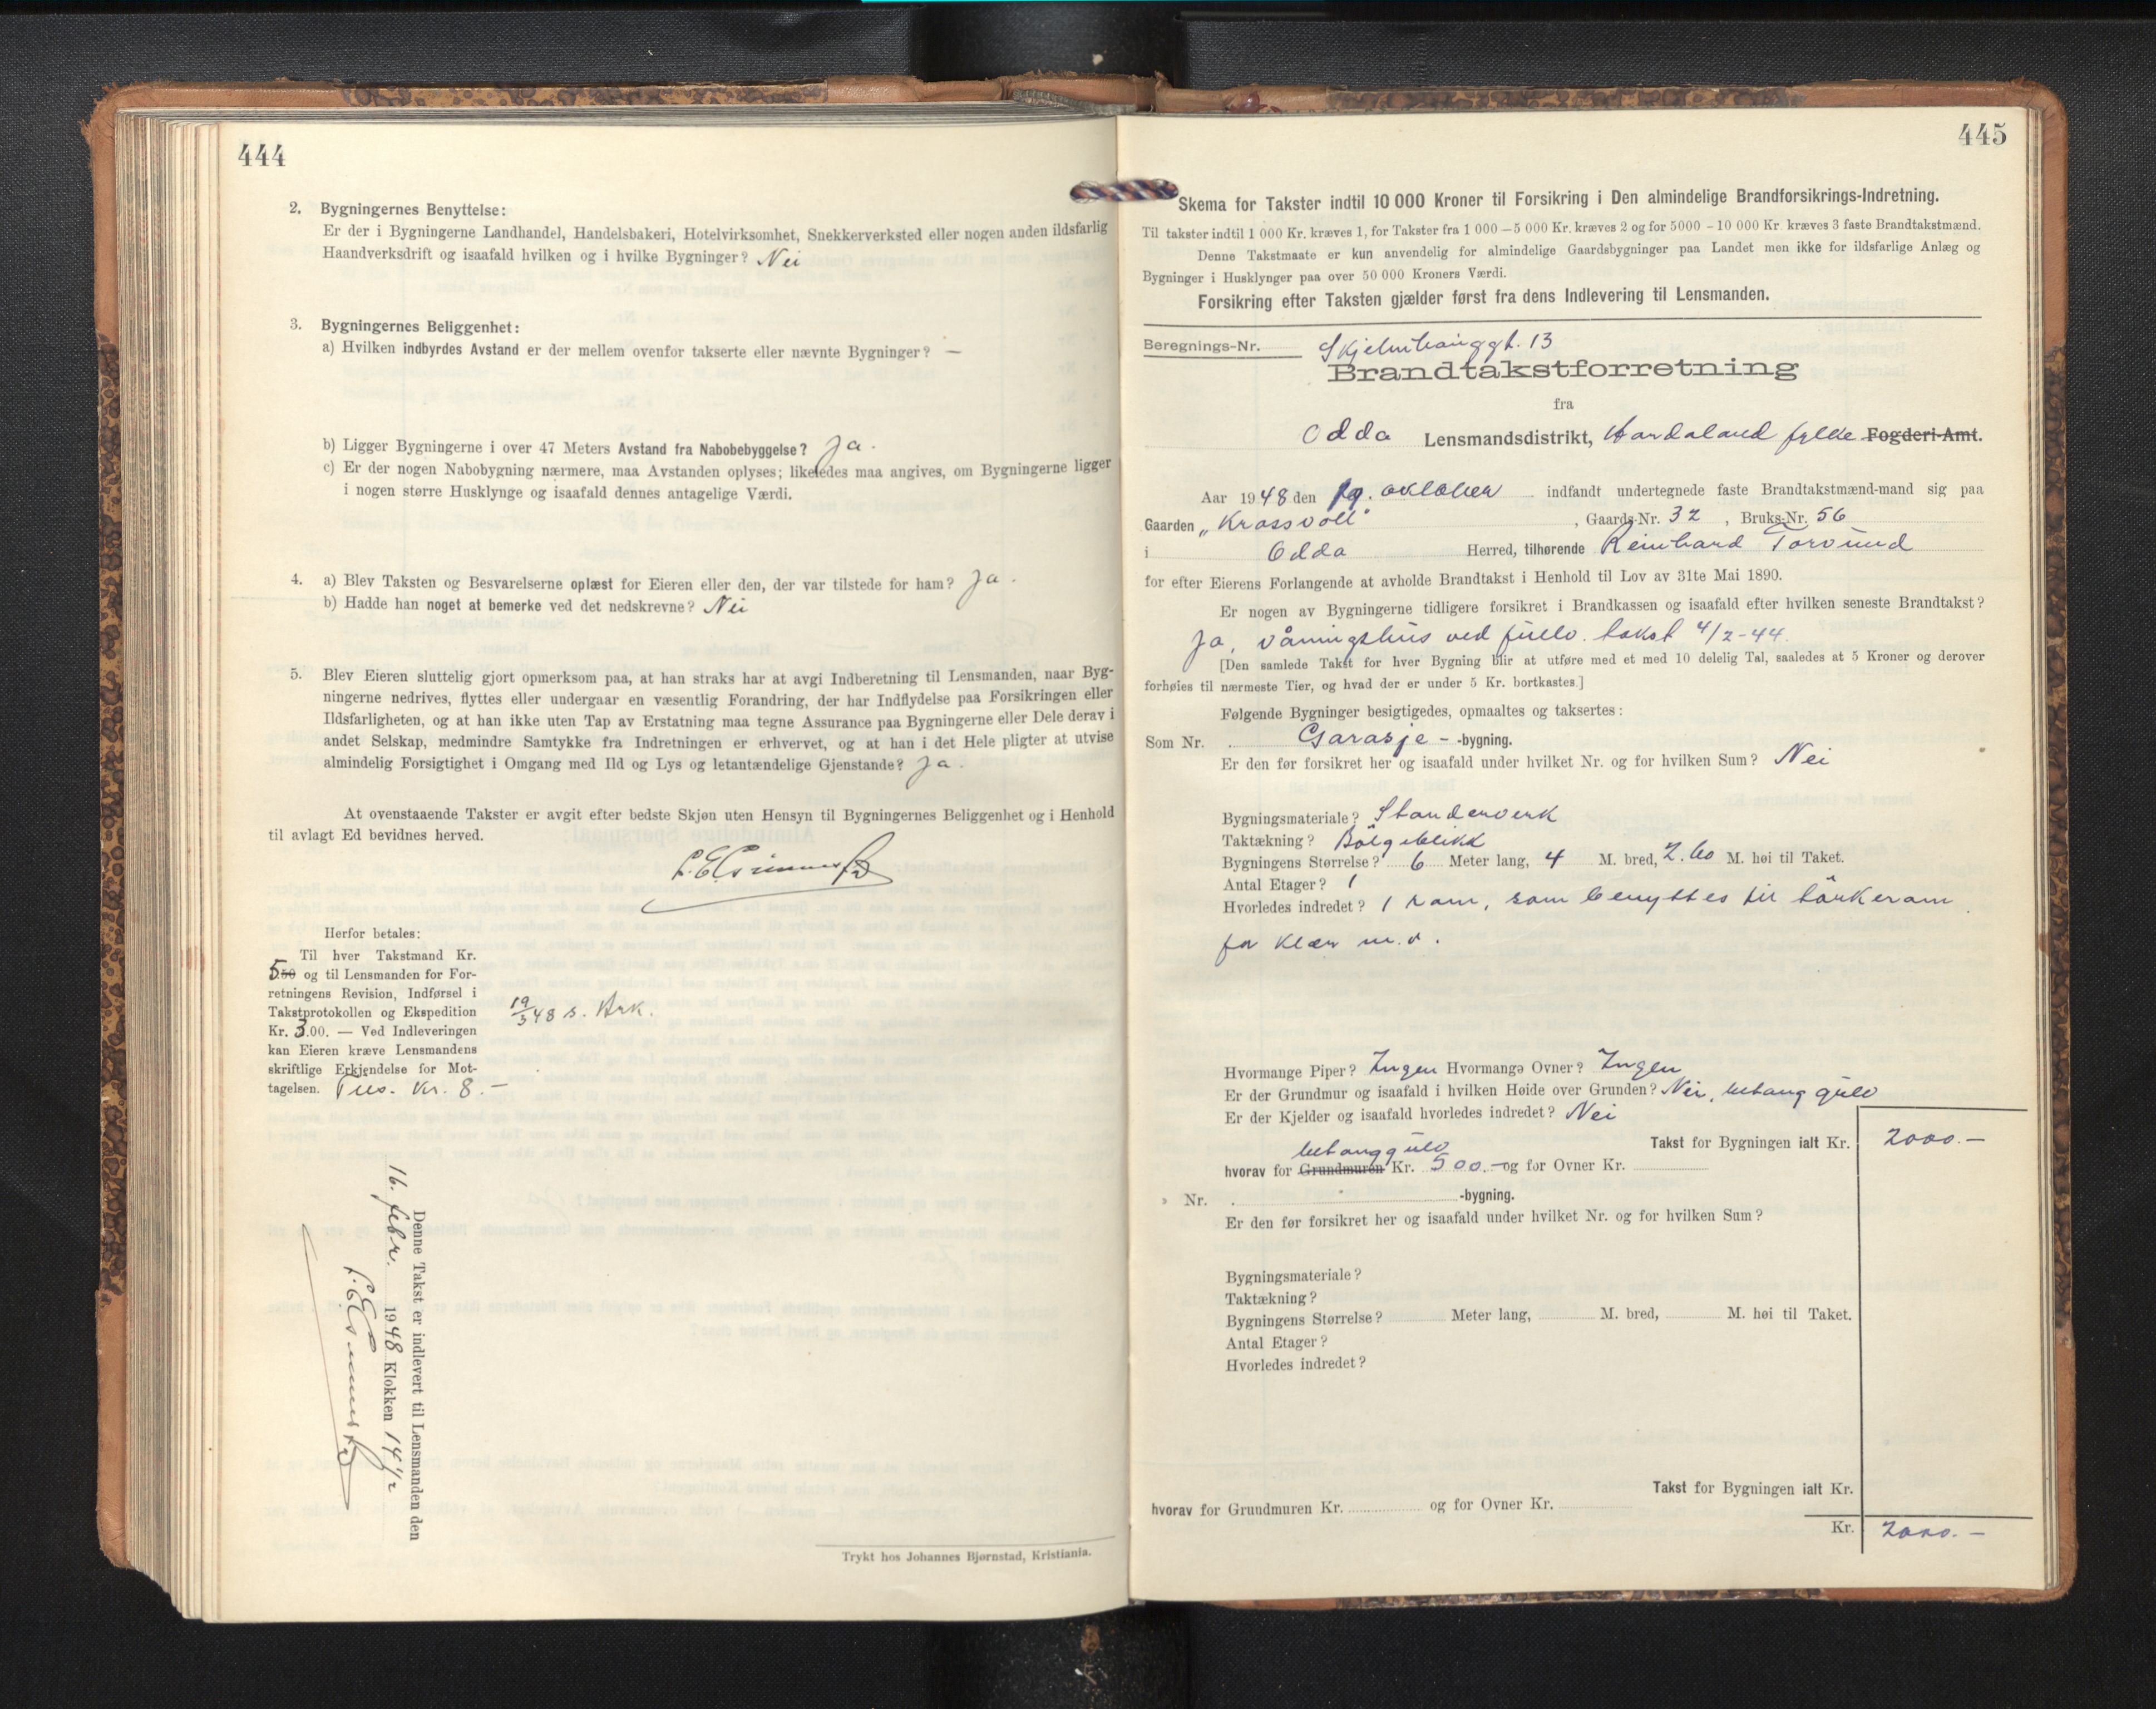 444
2. Bygningernes Benyttelse:
Er der i Bygningerne Landhandel, Handelsbakeri, Hotelvirksomhet, Snekkerverksted eller nogen anden ildsfarlig
Haandverksdrift og isaafald hvilken og i hvilke Bygninger? Nei
3. Bygningernes Beliggenhet:
a) Hvilken indbyrdes Avstand er der mellem ovenfor takserte eller nævnte Bygninger? —
b) Ligger Bygningerne i over 47 Meters Avstand fra Nabobebyggelse? Ja.
c) Er der nogen Nabobygning nærmere, maa Avstanden oplyses; likeledes maa angives, om Bygningerne ligger
i nogen større Husklynge og isaafald dennes antagelige Værdi.
4. a) Blev Taksten og Besvarelserne oplæst for Eieren eller den, der var tilstede for ham? Ja.
b) Hadde han noget at bemerke ved det nedskrevne? Nei
5. Blev Eieren sluttelig gjort opmerksom paa, at han straks har at avgi Indberetning til Lensmanden, naar Byg-
ningerne nedrives, flyttes eller undergaar en væsentlig Forandring, der har Indflydelse paa Forsikringen eller
Ildsfarligheten, og at han ikke uten Tap av Erstatning maa tegne Assurance paa Bygningerne eller Dele derav i
andet Selskap, medmindre Samtykke fra Indretningen er erhvervet, og at han i det Hele pligter at utvise
almindelig Forsigtighet i Omgang med Ild og Lys og letantændelige Gjenstande? Ja.
At ovenstaaende Takster er avgit efter bedste Skjøn uten Hensyn til Bygningernes Beliggenhet og i Henhold
til avlagt Ed bevidnes herved.
Herfor betales:
Til hver Takstmand Kr.
5.50 og til Lensmanden for For-
retningens Revision, Indførsel i
Takstprotokollen og Ekspedition
Kr. 3.00. — Ved Indleveringen
kan Eieren kræve Lensmandens
skriftlige Erkjendelse for Mot-
tagelsen. Tils. Kr. 8.—
19/3 48 s. Ark.
Denne Takst er indlevert til Lensmanden den
16. febr. 1948 Klokken 14 1/2
Trykt hos Johannes Bjørnstad, Kristiania.
445
Skema for Takster indtil 10 000 Kroner til Forsikring i Den almindelige Brandforsikrings-Indretning.
Til takster indtil 1 000 Kr. kræves 1, for Takster fra 1 000—5 000 Kr. kræves 2 og for 5000—10 000 Kr. kræves 3 faste Brandtakstmænd.
Denne Takstmaate er kun anvendelig for almindelige Gaardsbygninger paa Landet men ikke for ildsfarlige Anlæg og
Bygninger i Husklynger paa over 50 000 Kroners Værdi.
Forsikring efter Taksten gjælder først fra dens Indlevering til Lensmanden.
Beregnings-Nr. 13
Brandtakstforretning
fra
Odda Lensmandsdistrikt, Hordaland fylke Fogderi-Amt.
Aar 1948 den 19. oktober indfandt undertegnede faste Brandtakstmænd-mand sig paa
Gaarden „Krossvoll", Gaards-Nr. 32, Bruks-Nr. 56
i Odda Herred, tilhørende Reinhard Torvund
for efter Eierens Forlangende at avholde Brandtakst i Henhold til Lov av 31te Mai 1890.
Er nogen av Bygningerne tidligere forsikret i Brandkassen og isaafald efter hvilken seneste Brandtakst?
Ja, våningshus ved fullv. takst 4/2-44.
[Den samlede Takst for hver Bygning blir at utføre med et med 10 delelig Tal, saaledes at 5 Kroner og derover
forhøies til nærmeste Tier, og hvad der er under 5 Kr. bortkastes.]
Følgende Bygninger besigtigedes, opmaaltes og taksertes:
Som Nr. Garasje - -bygning.
Er den før forsikret her og isaafald under hvilket Nr. og for hvilken Sum? Nei
Bygningsmateriale? Standerverk
Taktækning? Bölgeblikk
Bygningens Størrelse? 6 Meter lang, 4 M. bred, 2.60 M. høi til Taket.
Antal Etager? 1
Hvorledes indredet? 1 rom, som benyttes til törkerom
for klær m.v.
Hvormange Piper? Ingen Hvormange Ovner? Ingen
Er der Grundmur og isaafald i hvilken Høide over Grunden? Nei, betong gulv
Er der Kjelder og isaafald hvorledes indredet? Nei
Takst for Bygningen ialt Kr. 2000.—
betonggulv
hvorav for Grundmuren Kr. 500.— og for Ovner Kr.
» Nr. -bygning.
Er den før forsikret her og isaafald under hvilket Nr. og for hvilken Sum?
Bygningsmateriale?
Taktækning?
Bygningens Størrelse? Meter lang, M. bred, M. høi til Taket.
Antal Etager?
Hvorledes indredet?
Takst for Bygningen ialt Kr.
hvorav for Grundmuren Kr. og for Ovner Kr.
Kr. 2000.—